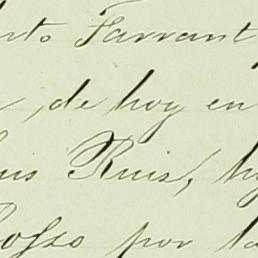 rto Farrant
, de hoy en
us Ruis, h
osso por la